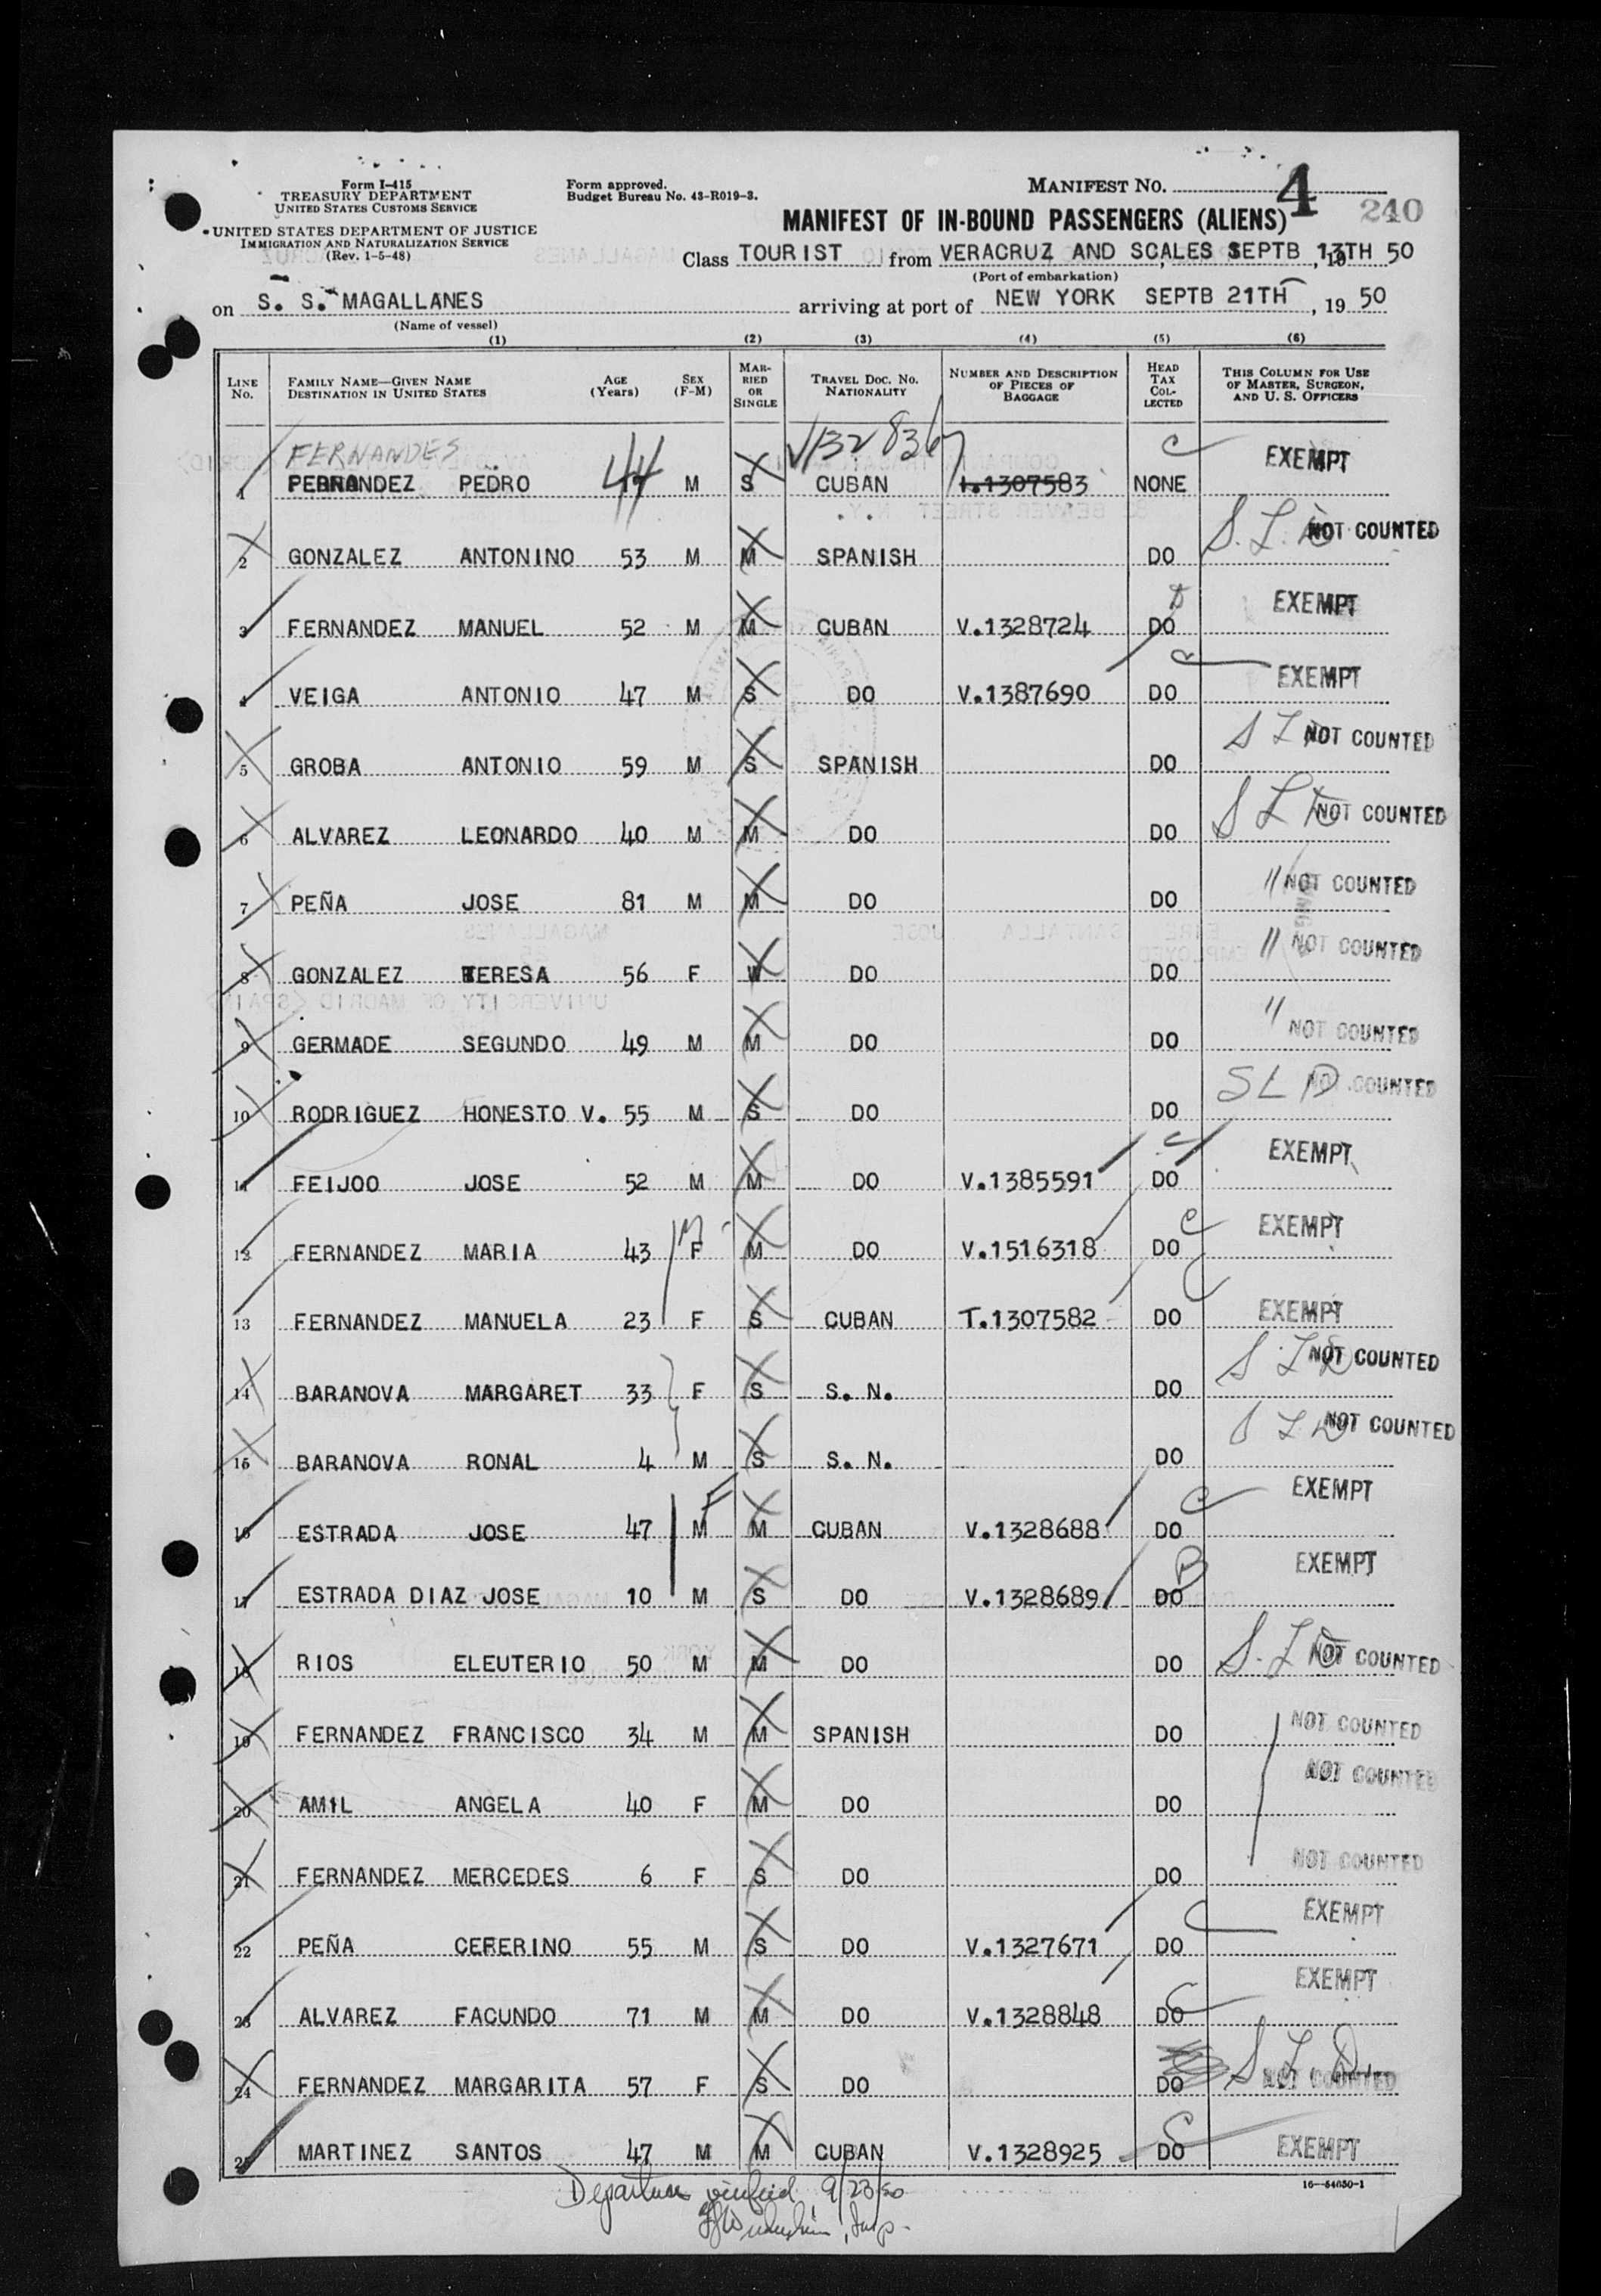 Form I-415
TREASURY DEPARTMENT
UNITED STATES CUSTOMS SERVICE
UNITED STATES DEPARTMENT OF JUSTICE
IMMIGRATION AND NATURALIZATION SERVICE
(Rev. 1-5-48)
Form approved.
Budget Bureau No. 43-R019-3.
MANIFEST NO. 4
240
MANIFEST OF IN-BOUND PASSENGERS (ALIENS)
Class TOURIST from VERACRUZ AND SCALES SEPTB 13TH, 19 50
(Port of embarkation)
on S. S. MAGALLANES arriving at port of NEW YORK SEPTB 21TH, 19 50
(Name of vessel)
(1) (2) (3) (4) (5) (6)
LINE NO. FAMILY NAME—GIVEN NAME DESTINATION IN UNITED STATES AGE (Years) SEX (F-M) MARRIED OR SINGLE TRAVEL DOC. NO. NATIONALITY NUMBER AND DESCRIPTION OF PIECES OF BAGGAGE HEAD TAX COLLECTED THIS COLUMN FOR USE OF MASTER, SURGEON, AND U. S. OFFICERS
FERNANDES V132 8367 C EXEMPT
1 FERNANDEZ PEDRO 44 M S CUBAN T.1307583 NONE
2 GONZALEZ ANTONINO 53 M M SPANISH DO S.L.D NOT COUNTED
3 FERNANDEZ MANUEL 52 M M CUBAN V.1328724 DO EXEMPT
4 VEIGA ANTONIO 47 M S DO V.1387690 DO C EXEMPT
5 GROBA ANTONIO 59 M S SPANISH DO S L D NOT COUNTED
6 ALVAREZ LEONARDO 40 M M DO DO S L D NOT COUNTED
7 PEÑA JOSE 81 M M DO DO " NOT COUNTED
8 GONZALEZ TERESA 56 F W DO DO " NOT COUNTED
9 GERMADE SEGUNDO 49 M M DO DO " NOT COUNTED
10 RODRIGUEZ HONESTO V. 55 M S DO DO S L D NOT COUNTED
11 FEIJOO JOSE 52 M M DO V.1385591 DO C EXEMPT
12 FERNANDEZ MARIA 43 F M M DO V.1516318 DO C EXEMPT
13 FERNANDEZ MANUELA 23 F S CUBAN T.1307582 DO C EXEMPT
14 BARANOVA MARGARET 33 F S S. N. DO S L D NOT COUNTED
15 BARANOVA RONAL 4 M S S. N. DO S L D NOT COUNTED
16 ESTRADA JOSE 47 M F M CUBAN V.1328688 DO C EXEMPT
17 ESTRADA DIAZ JOSE 10 M S DO V.1328689 DO B EXEMPT
18 RIOS ELEUTERIO 50 M M DO DO S.L D NOT COUNTED
19 FERNANDEZ FRANCISCO 34 M M SPANISH DO NOT COUNTED
20 AMIL ANGELA 40 F M DO DO NOT COUNTED
21 FERNANDEZ MERCEDES 6 F S DO DO NOT COUNTED
22 PEÑA CEFERINO 55 M S DO V.1327671 DO C EXEMPT
23 ALVAREZ FACUNDO 71 M M DO V.1328848 DO C EXEMPT
24 FERNANDEZ MARGARITA 57 F S DO DO S L D NOT COUNTED
25 MARTINEZ SANTOS 47 M M CUBAN V.1328925 DO C EXEMPT
16—54050-1
Departure verified 9/23/50
Insp.